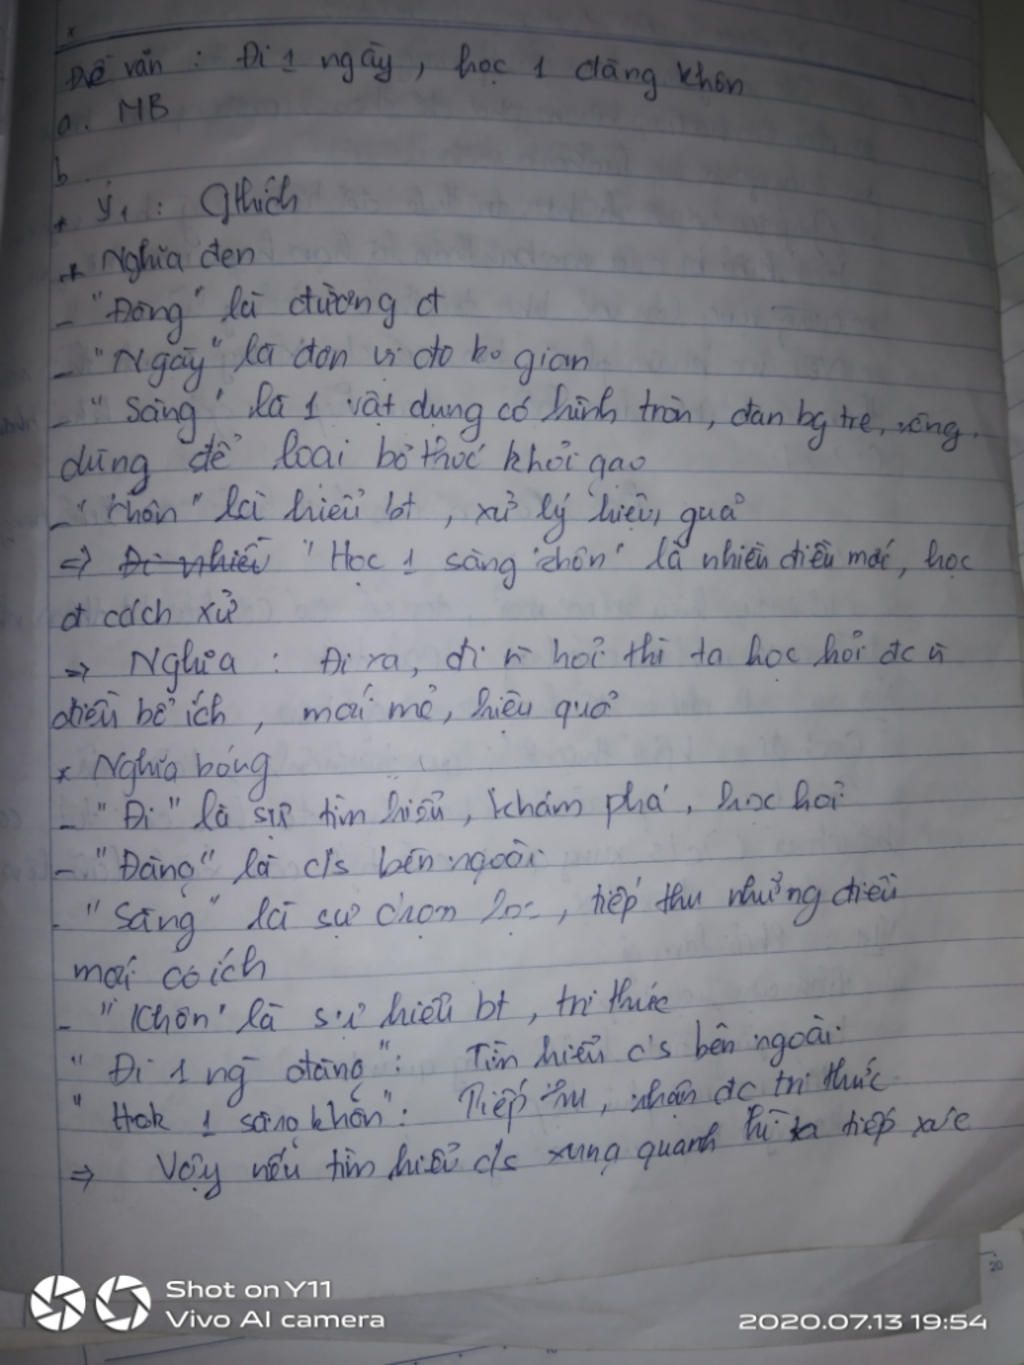 Đề văn : Đi 1 ngày, học 1 dàng khôn
a. MB
b.
+ Ý1: Gthích
+ Nghĩa đen
- "Đàng" là đường đ
- "Ngày" là đơn vị đo ko gian
- "Sàng" là 1 vật dụng có hình tròn, đan bg tre,
dùng để loại bỏ thóc khỏi gạo
- "Khôn" là hiểu bt, xử lý hiệu quả
=> Đi nhiều "Học 1 sàng khôn" là nhiều điều mới, học
đ cách xử
=> Nghĩa : Đi ra, đi hỏi thì ta học hỏi đc
điều bổ ích, mới mẻ, hiệu quả
* Nghĩa bóng
- "Đi" là sự tìm hiểu, khám phá, học hỏi
- "Đàng" là c/s bên ngoài
- "Sàng" là sự chọn lọc, tiếp thu những điều
mới có ích
- "Khôn" là sự hiểu bt, tri thức
"Đi 1 ng đàng": Tìm hiểu c/s bên ngoài
"Hok 1 sàng khôn": Tiếp thu, nhận đc tri thức
=> Vậy nếu tìm hiểu c/s xung quanh thì ta tiếp xúc
20
Shot on Y11
Vivo AI camera
2020.07.13 19:54